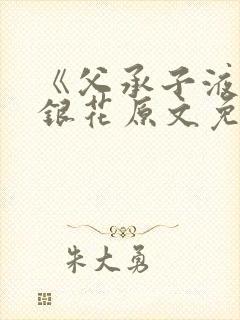 《父承子液
銀花原文免
朱大勇